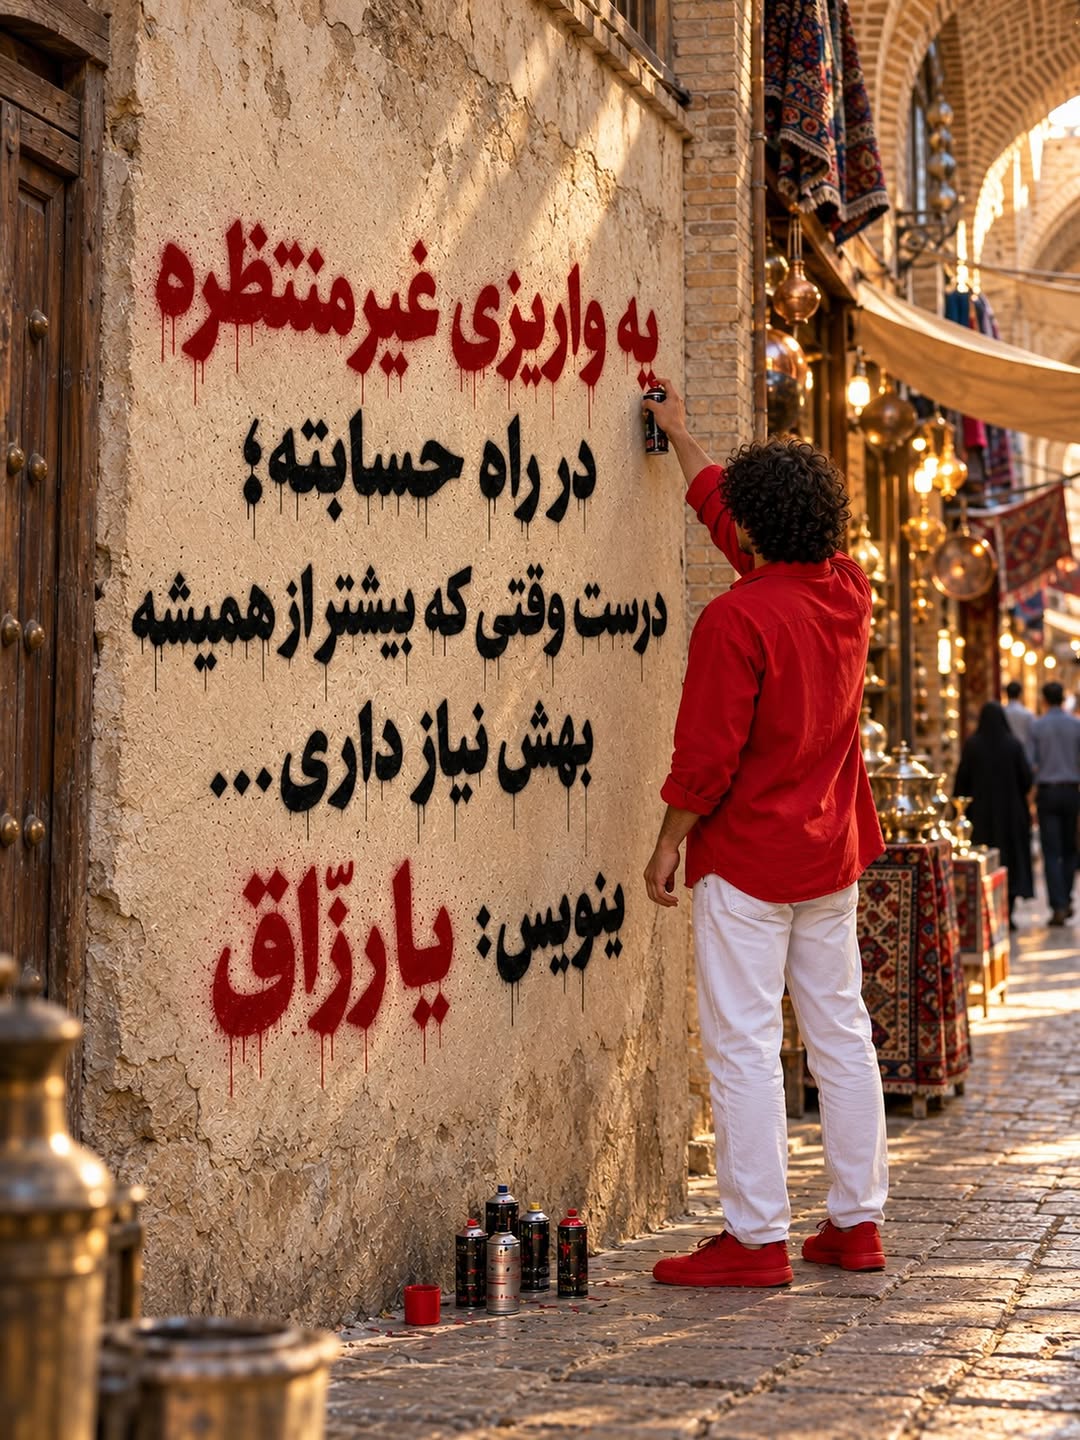 یه واریزی غیرمنتظره
در راه حسابته؛
درست وقتی که بیشتر از همیشه
بهش نیاز داری...
بنویس: یا رزّاق